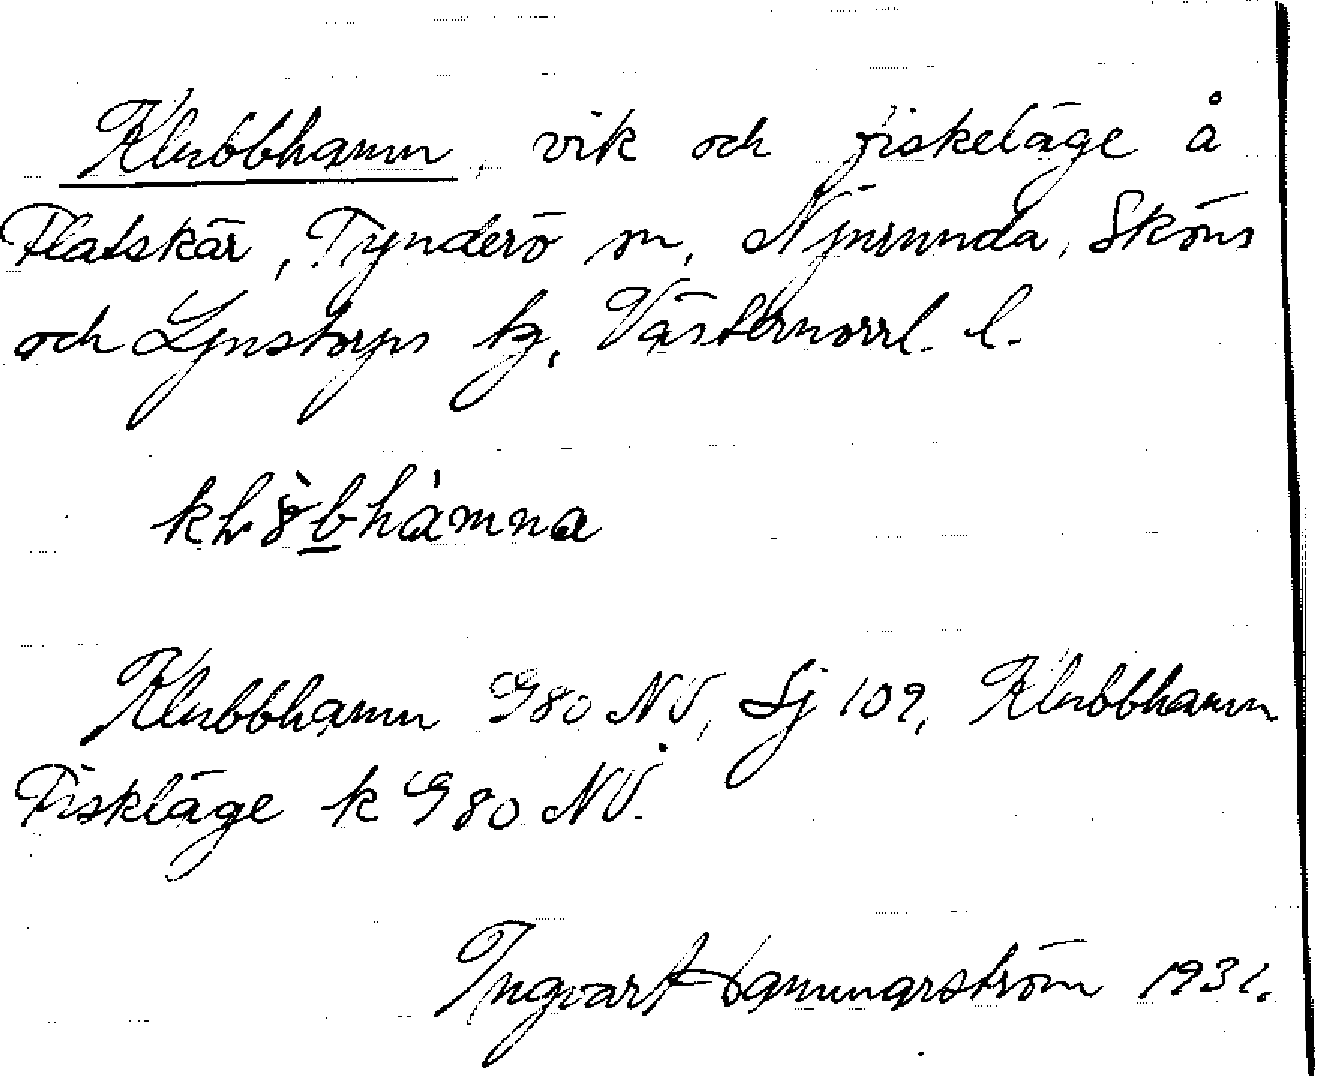 Klubbhamn, vik och fiskeläge å
Flatskär, Tynderö sn, Njurunda, Sköns
och Ljustorps tg, Västernorrl. l.
Klubbhamn G80 NV, Sj 109, Klubbhamn
Fiskläge k G80 NV.
Ingvar Hammarström 1931.